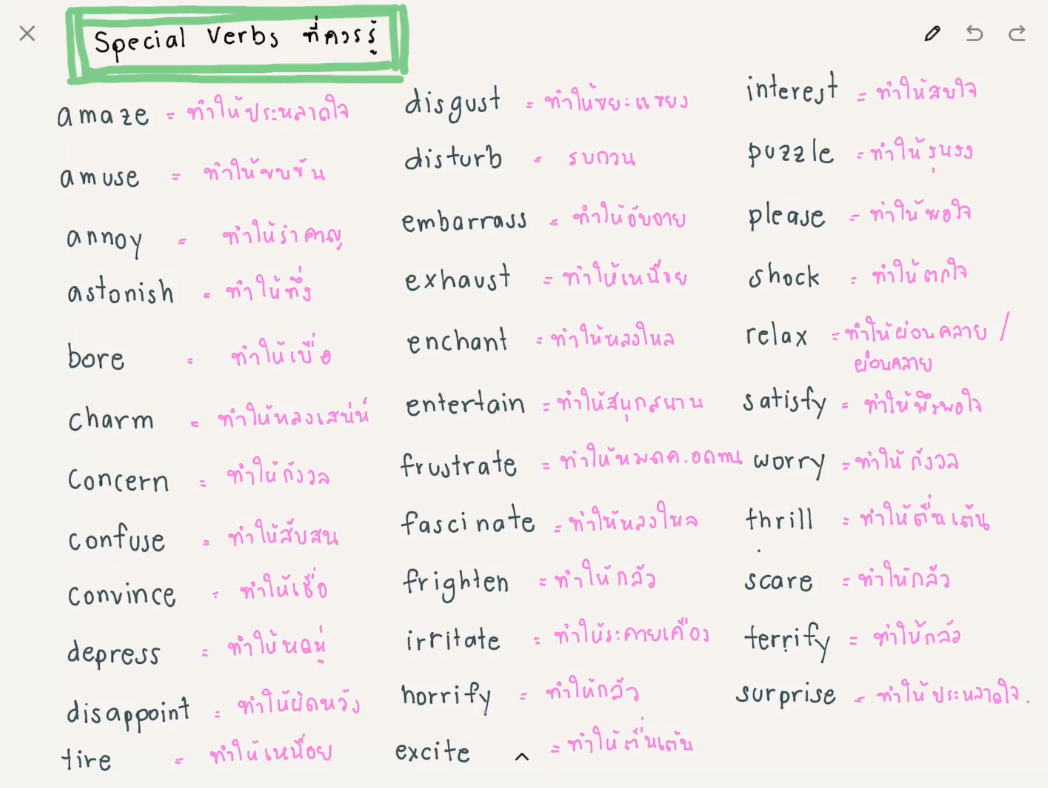 Special Verbs ที่ควรรู้
amaze = ทำให้ประหลาดใจ
amuse = ทำให้ขบขัน
annoy = ทำให้รำคาญ
astonish = ทำให้ทึ่ง
bore = ทำให้เบื่อ
charm = ทำให้หลงเสน่ห์
concern = ทำให้กังวล
confuse = ทำให้สับสน
convince = ทำให้เชื่อ
depress = ทำให้หดหู่
disappoint = ทำให้ผิดหวัง
tire = ทำให้เหนื่อย
disgust = ทำให้ขยะแขยง
disturb = รบกวน
embarrass = ทำให้อับอาย
exhaust = ทำให้เหนื่อย
enchant = ทำให้หลงใหล
entertain = ทำให้สนุกสนาน
frustrate = ทำให้หมดค.อดทน
fascinate = ทำให้หลงใหล
frighten = ทำให้กลัว
irritate = ทำให้ระคายเคือง
horrify = ทำให้กลัว
excite = ทำให้ตื่นเต้น
interest = ทำให้สนใจ
puzzle = ทำให้งุนงง
please = ทำให้พอใจ
shock = ทำให้ตกใจ
relax = ทำให้ผ่อนคลาย /
ผ่อนคลาย
satisfy = ทำให้พึงพอใจ
worry = ทำให้กังวล
thrill = ทำให้ตื่นเต้น
scare = ทำให้กลัว
terrify = ทำให้กลัว
surprise = ทำให้ประหลาดใจ.